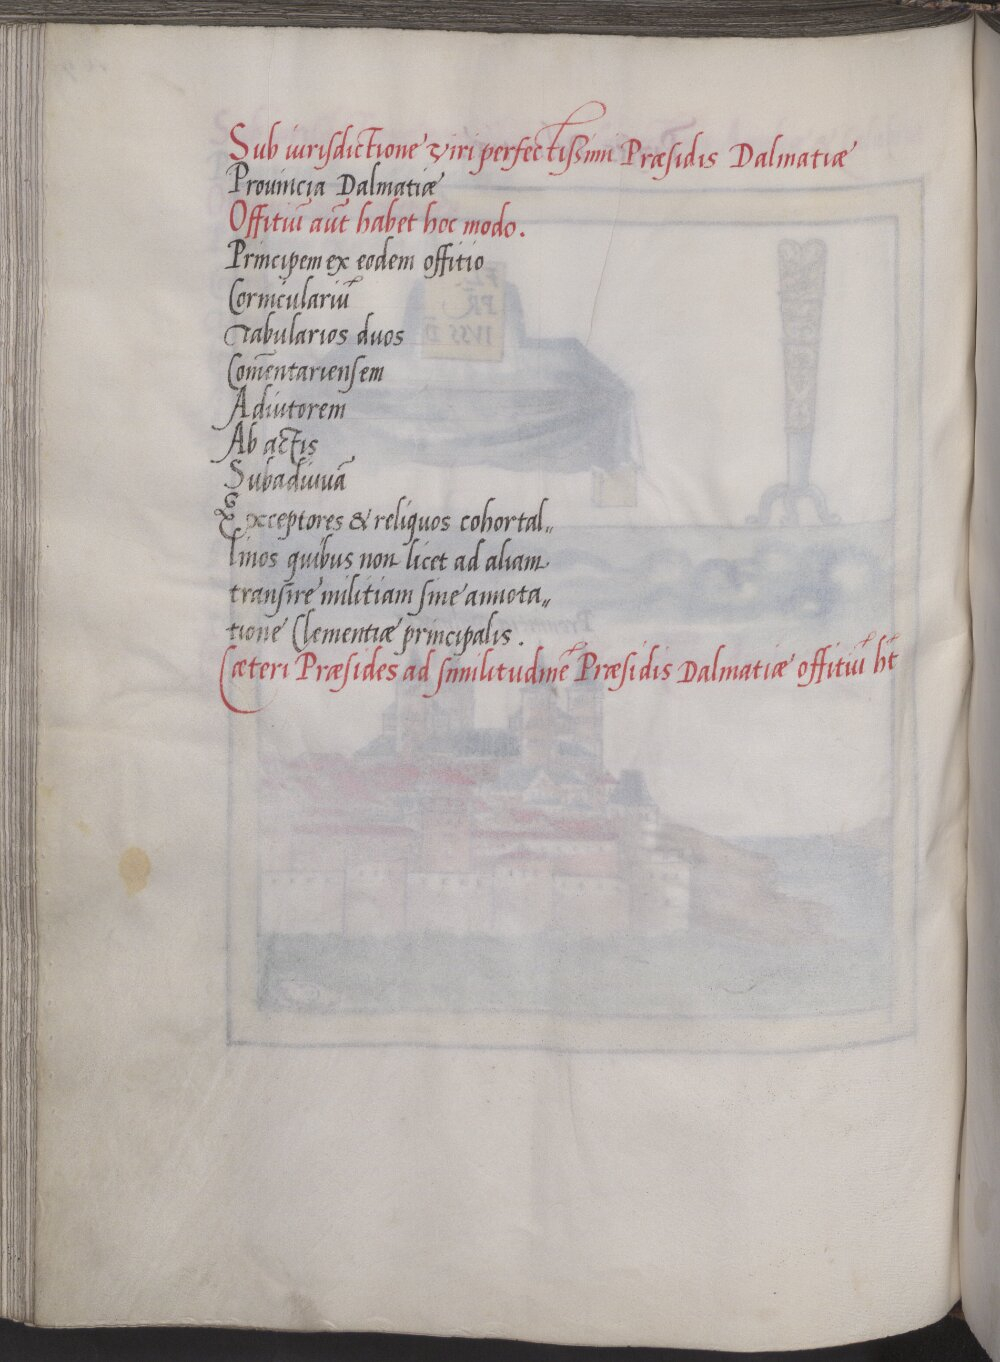 Sub iurisdictione viri perfectissimi Præsidis Dalmatiæ
Prouincia Dalmatiæ
Offitiū aūt habet hoc modo.
Principem ex eodem offitio
Corniculariū
Tabularios duos
Com̄entariensem
Adiutorem
Ab actis
Subadiuuā
Exceptores & reliquos cohortal„
linos quibus non licet ad aliam
transire militiam sine annota„
tione Clementiæ principalis.
Cæteri Præsides ad similitudinē Præsidis Dalmatiæ offitiū hn̄t